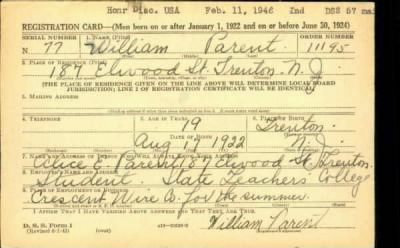 Honr Disc. USA Feb. 11, 1946 Ind DSS 57
REGISTRATION CARD—(Men born on or after January 1, 1922 and on or before June 30, 1924)
SERIAL NUMBER 1. NAME (Print) ORDER NUMBER
N 77 William Parent 11195
2. PLACE OF RESIDENCE (Print)
187 Elwood St. Trenton N.J.
[THE PLACE OF RESIDENCE GIVEN ON THE LINE ABOVE WILL DETERMINE LOCAL BOARD
JURISDICTION; LINE 2 OF REGISTRATION CERTIFICATE WILL BE IDENTICAL]
3. MAILING ADDRESS
4. TELEPHONE 5. AGE IN YEARS 6. PLACE OF BIRTH
19 Trenton
DATE OF BIRTH
Aug 17 1922 N.J.
7. NAME AND ADDRESS OF PERSON WHO WILL ALWAYS KNOW YOUR ADDRESS
Alice C. Parent 187 Elwood St. Trenton
Student State Teachers College
Crescent Wire Co. for the summer
I AFFIRM THAT I HAVE VERIFIED ABOVE ANSWERS AND THAT THEY ARE TRUE.
D. S. S. Form 1
William Parent